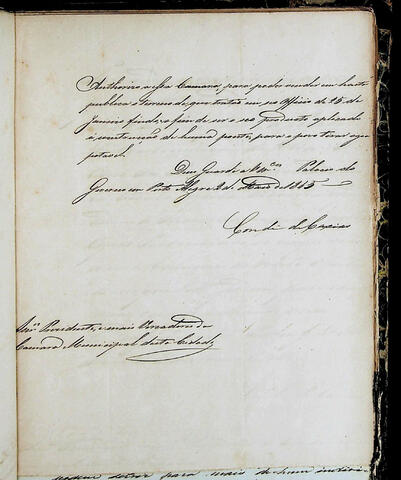 Authoriso a essa Camara, para poder vender em hasta
publica o terreno de que trata em seo Officio de 25 de
Janeiro findo, a fim de ser o seo producto applicado
á construcção de huma ponte, para o povo tirar agoa
potavel.
Deos Guarde a V.mces Palacio do
Governo em Porto Alegre 2 de de 1845
Conde de Caxias
Snr.s Presidente, e mais Vereadores da
Camara Municipal desta Cidade
podem deitar para mais de hum